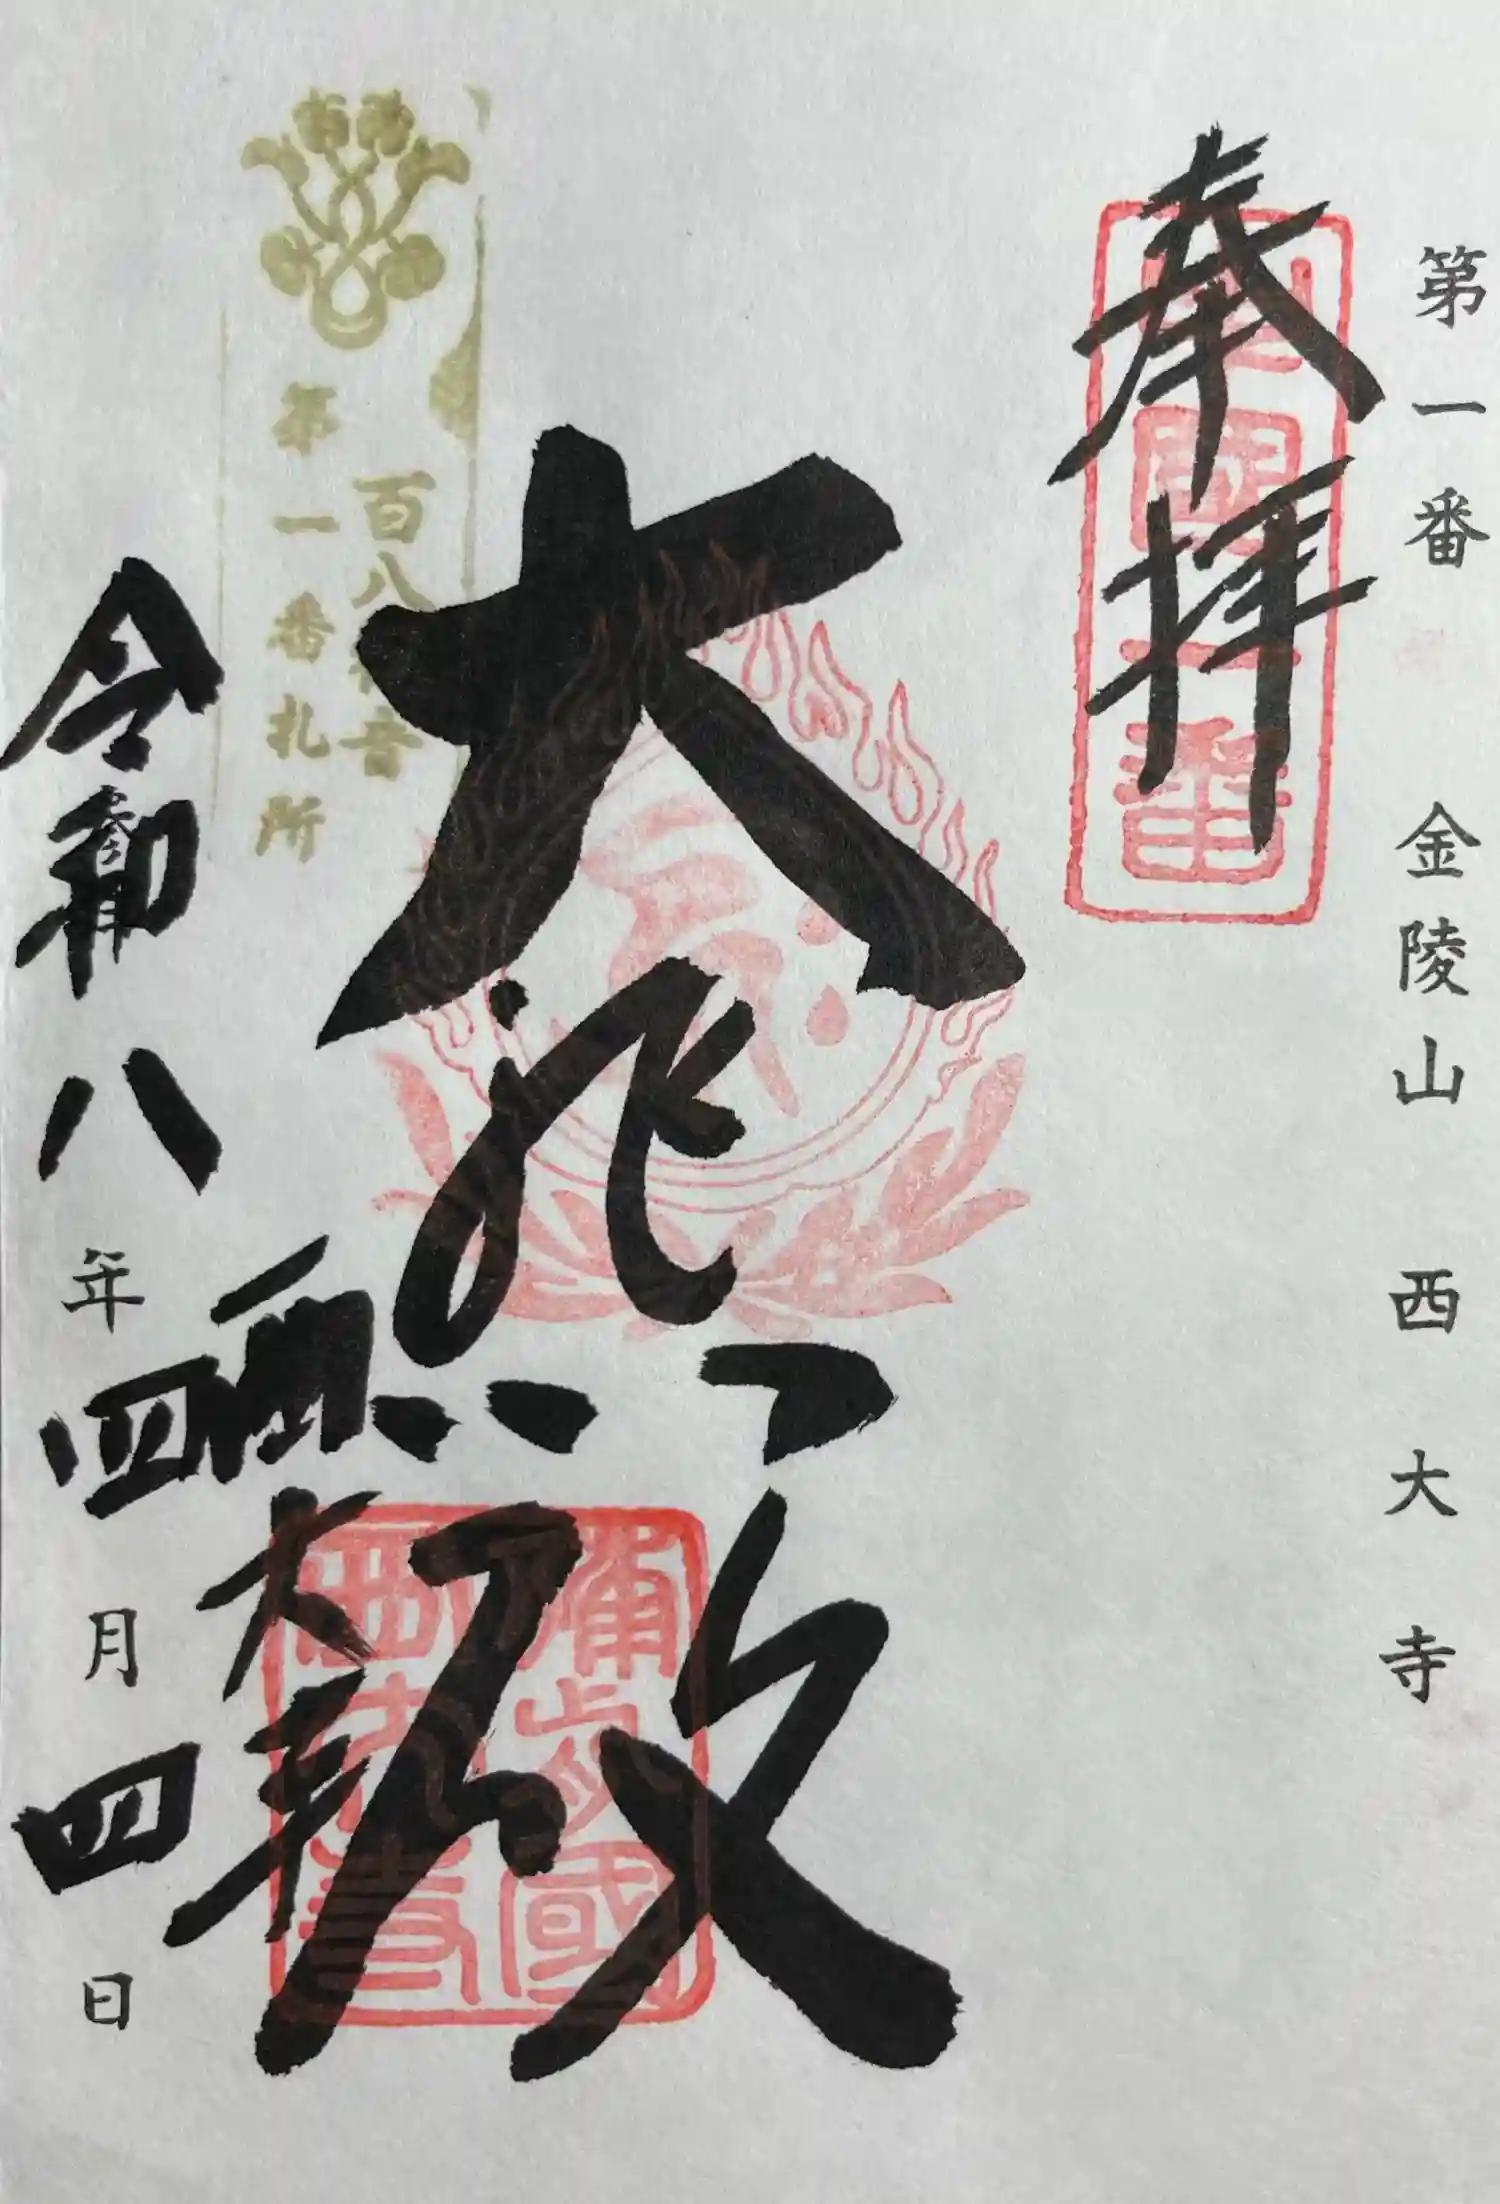 第一番 金陵山 西大寺
奉拝
中國一番
大悲殿
百八観音
第一番札所
備前國
西大寺
西大寺
令和八年四月四日